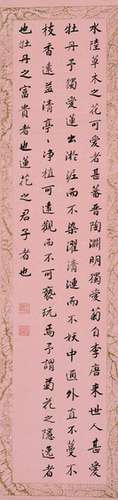 水陸草木之花可愛者甚蕃晉陶淵明獨愛菊自李唐來世人甚愛
牡丹予獨愛蓮出淤泥而不染濯清漣而不妖中通外直不蔓不
枝香遠益清亭〻淨植可遠觀而不可褻玩焉予謂菊花之隱逸者
也牡丹之富貴者也蓮花之君子者也